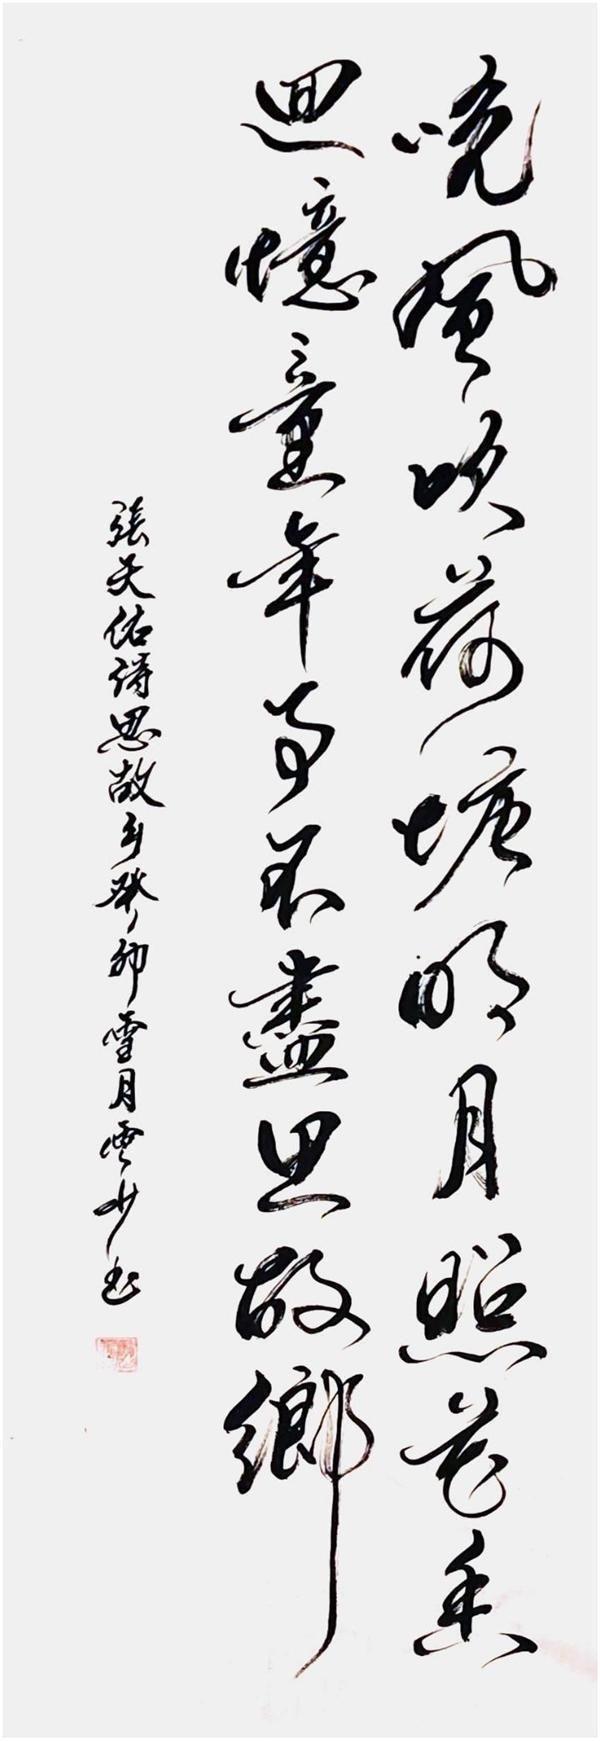 晚風吹荷塘明月照花香
回憶童年事不盡思故鄉
張天佑詩思故乡癸卯雪月雲少书